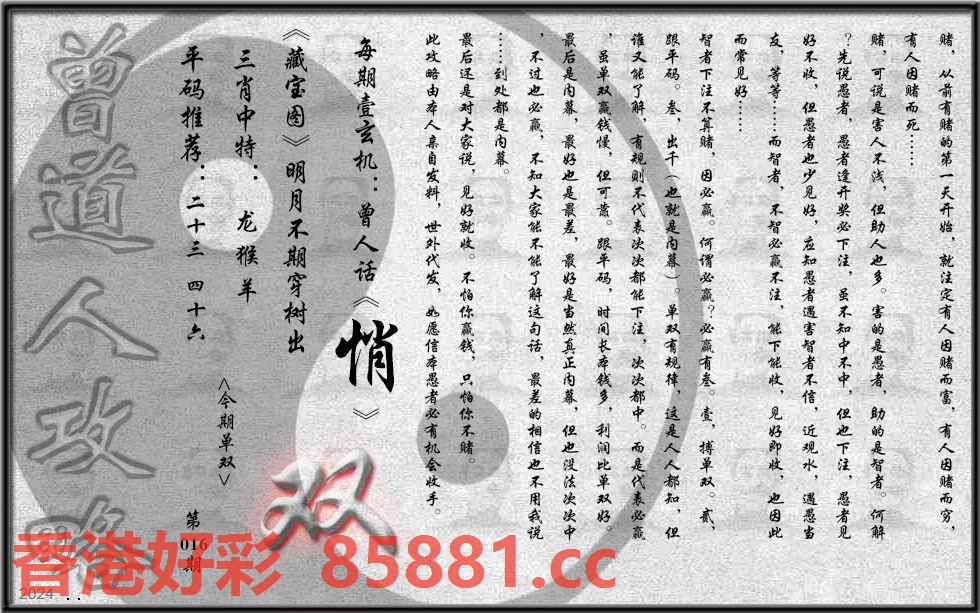 赌，从前有赌的第一天开始，就注定有人因赌而富，有人因赌而穷，
有人因赌而死……
赌，可说是害人不浅，但助人也多。害的是愚者，助的是智者。何解
？先说愚者，愚者逢开奖必下注，虽不知中不中，但也下注，愚者见
好不收，但愚者也少见好，应知愚者遇害智者不信，近观水，遇愚当
友，等等……而智者，不智必赢不注，能下能收，见好即收，也因此
而常见好……
智者下注不算赌，因必赢。何谓必赢？必赢有叁。壹，搏单双。贰，
跟平码。叁，出千（也就是内幕）。单双有规律，这是人人都知，但
谁又能了解，有规则不代表次次都能下注，次次都中。而是代表必赢
，虽单双赢钱慢，但可靠。跟平码，时间长本钱多，利润比单双好。
最后是内幕，最好也是最差，最好是当然真正内幕，但也没法次次中
，不过也必赢，不知大家能不能了解这句话，最差的相信也不用我说
……到处都是内幕。
最后还是对大家说，见好就收。不怕你赢钱，只怕你不赌。
此攻略由本人亲自发料，世外代发，如愿信本愚者必有机会收手。
每期壹玄机：曾人话《悄》
《藏宝图》明月不期穿树出
三肖中特：龙猴羊
平码推荐：二十三 四十六
<今期单双>
双
第
016
期
曾道人攻略
香港好彩 85881.cc
2024